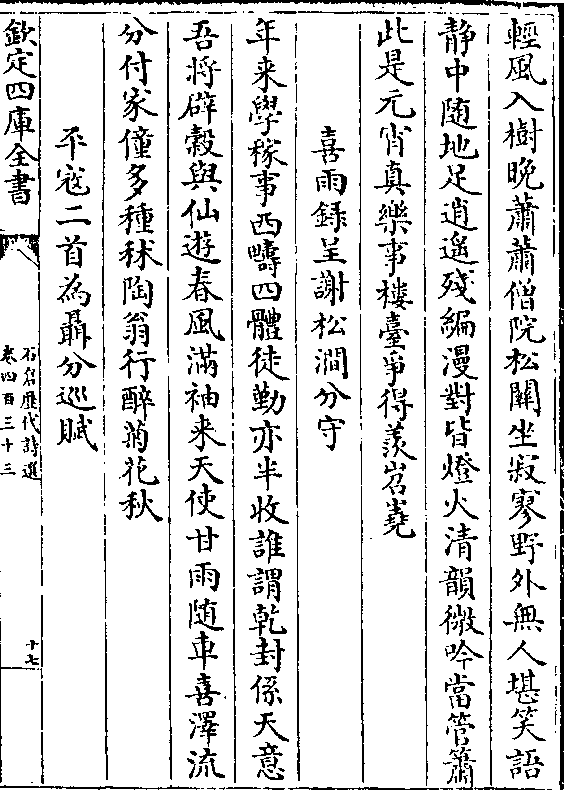 輕風入樹晚蕭蕭僧院松關坐寂寥野外無人堪笑語
静中随地足逍遥殘編漫對皆燈火清韻微吟當管簫
此是元宵真樂事樓臺爭得羨岧嶤
喜雨録呈謝松澗分守
年来學稼事西疇四體徒勤亦半收誰謂乾封係天意
吾將辟穀與仙遊春風滿袖来天使甘雨随車喜澤流
分付家僮多種秫陶翁行醉菊花秋
平寇二首為聶分巡賦
欽定四庫全書
石倉歷代詩選
卷四百三十三
十七